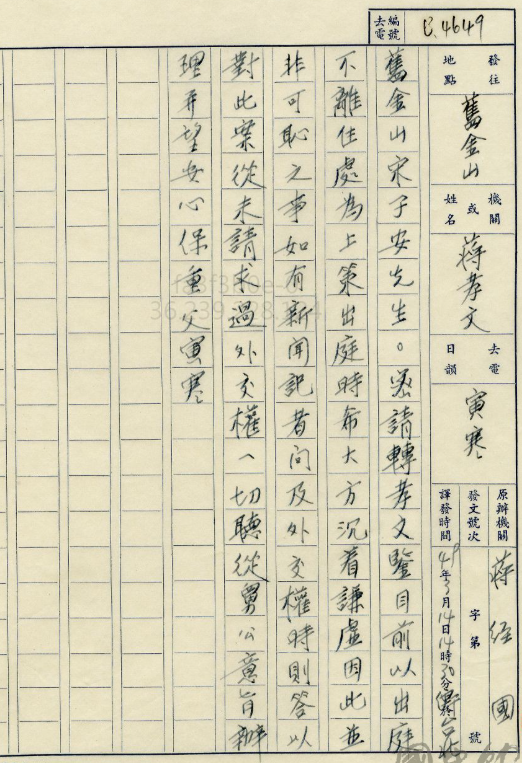 編號
去電
E.4649
發往
地點
舊金山
機關
或
姓名
蔣孝文
去電
日韻
寅寒
原辦機關
蔣經國
發文號次
字第
號
譯發時間
49年3月14日14時20分
舊金山宋子安先生。密請轉孝文鑒目前以出庭
不離住處為上策出庭時希大方沉着謙虛因此並
非可恥之事如有新聞記者問及外交權時則答以
對此案從未請求過外交權一切聽從舅公意旨辦
理並望安心保重父寅寒